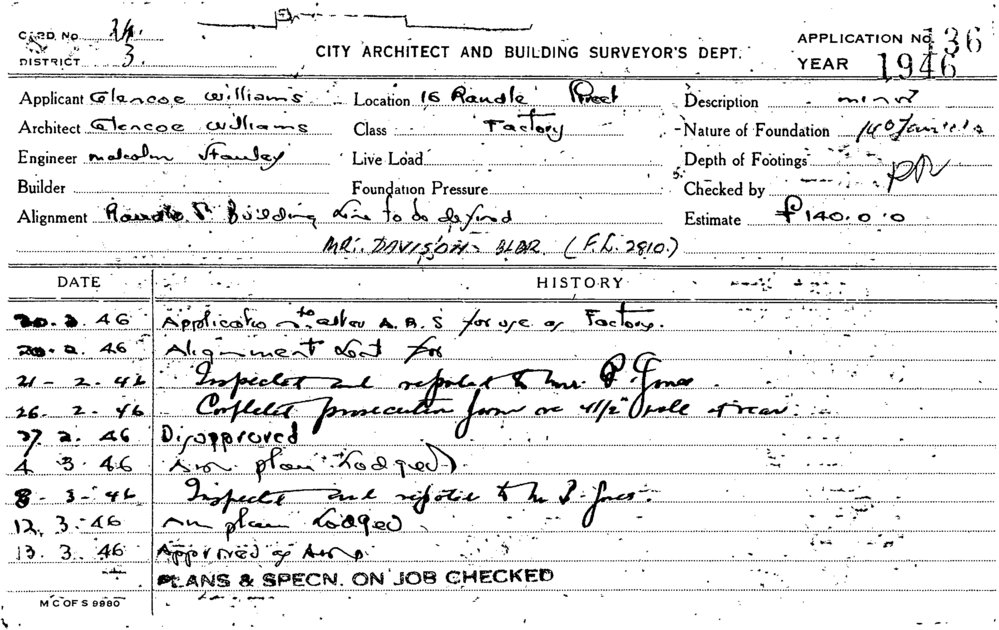 CARD No. 24
DISTRICT 3.
CITY ARCHITECT AND BUILDING SURVEYOR'S DEPT.
APPLICATION No. 136
YEAR 1946
Applicant Glencoe Williams Location 16 Randle Street Description minor
Architect Glencoe Williams Class Factory Nature of Foundation
Engineer Malcolm Stanley Live Load Depth of Footings
Builder Foundation Pressure Checked by
Alignment Randle St Building Line to be defined Estimate £140.0.0
MR. DAVISON BLDR (F.L. 2810.)
DATE HISTORY
20.2.46 Application to alter A.R.S for use as Factory.
20.2.46 Alignment Lent for
21-2.46 Inspected and reported to Mr. P. Jones.
26.2.46 prosecution form re 4 1/2" wall at rear.
27.2.46 Disapproved
4 3.46 Am. plan Lodged.
8-3-46 Inspected and reported to Mr P. Jones.
12.3.46 Am plan Lodged
13.3.46 Approved as
PLANS & SPECN. ON JOB CHECKED
M C OF S 9980